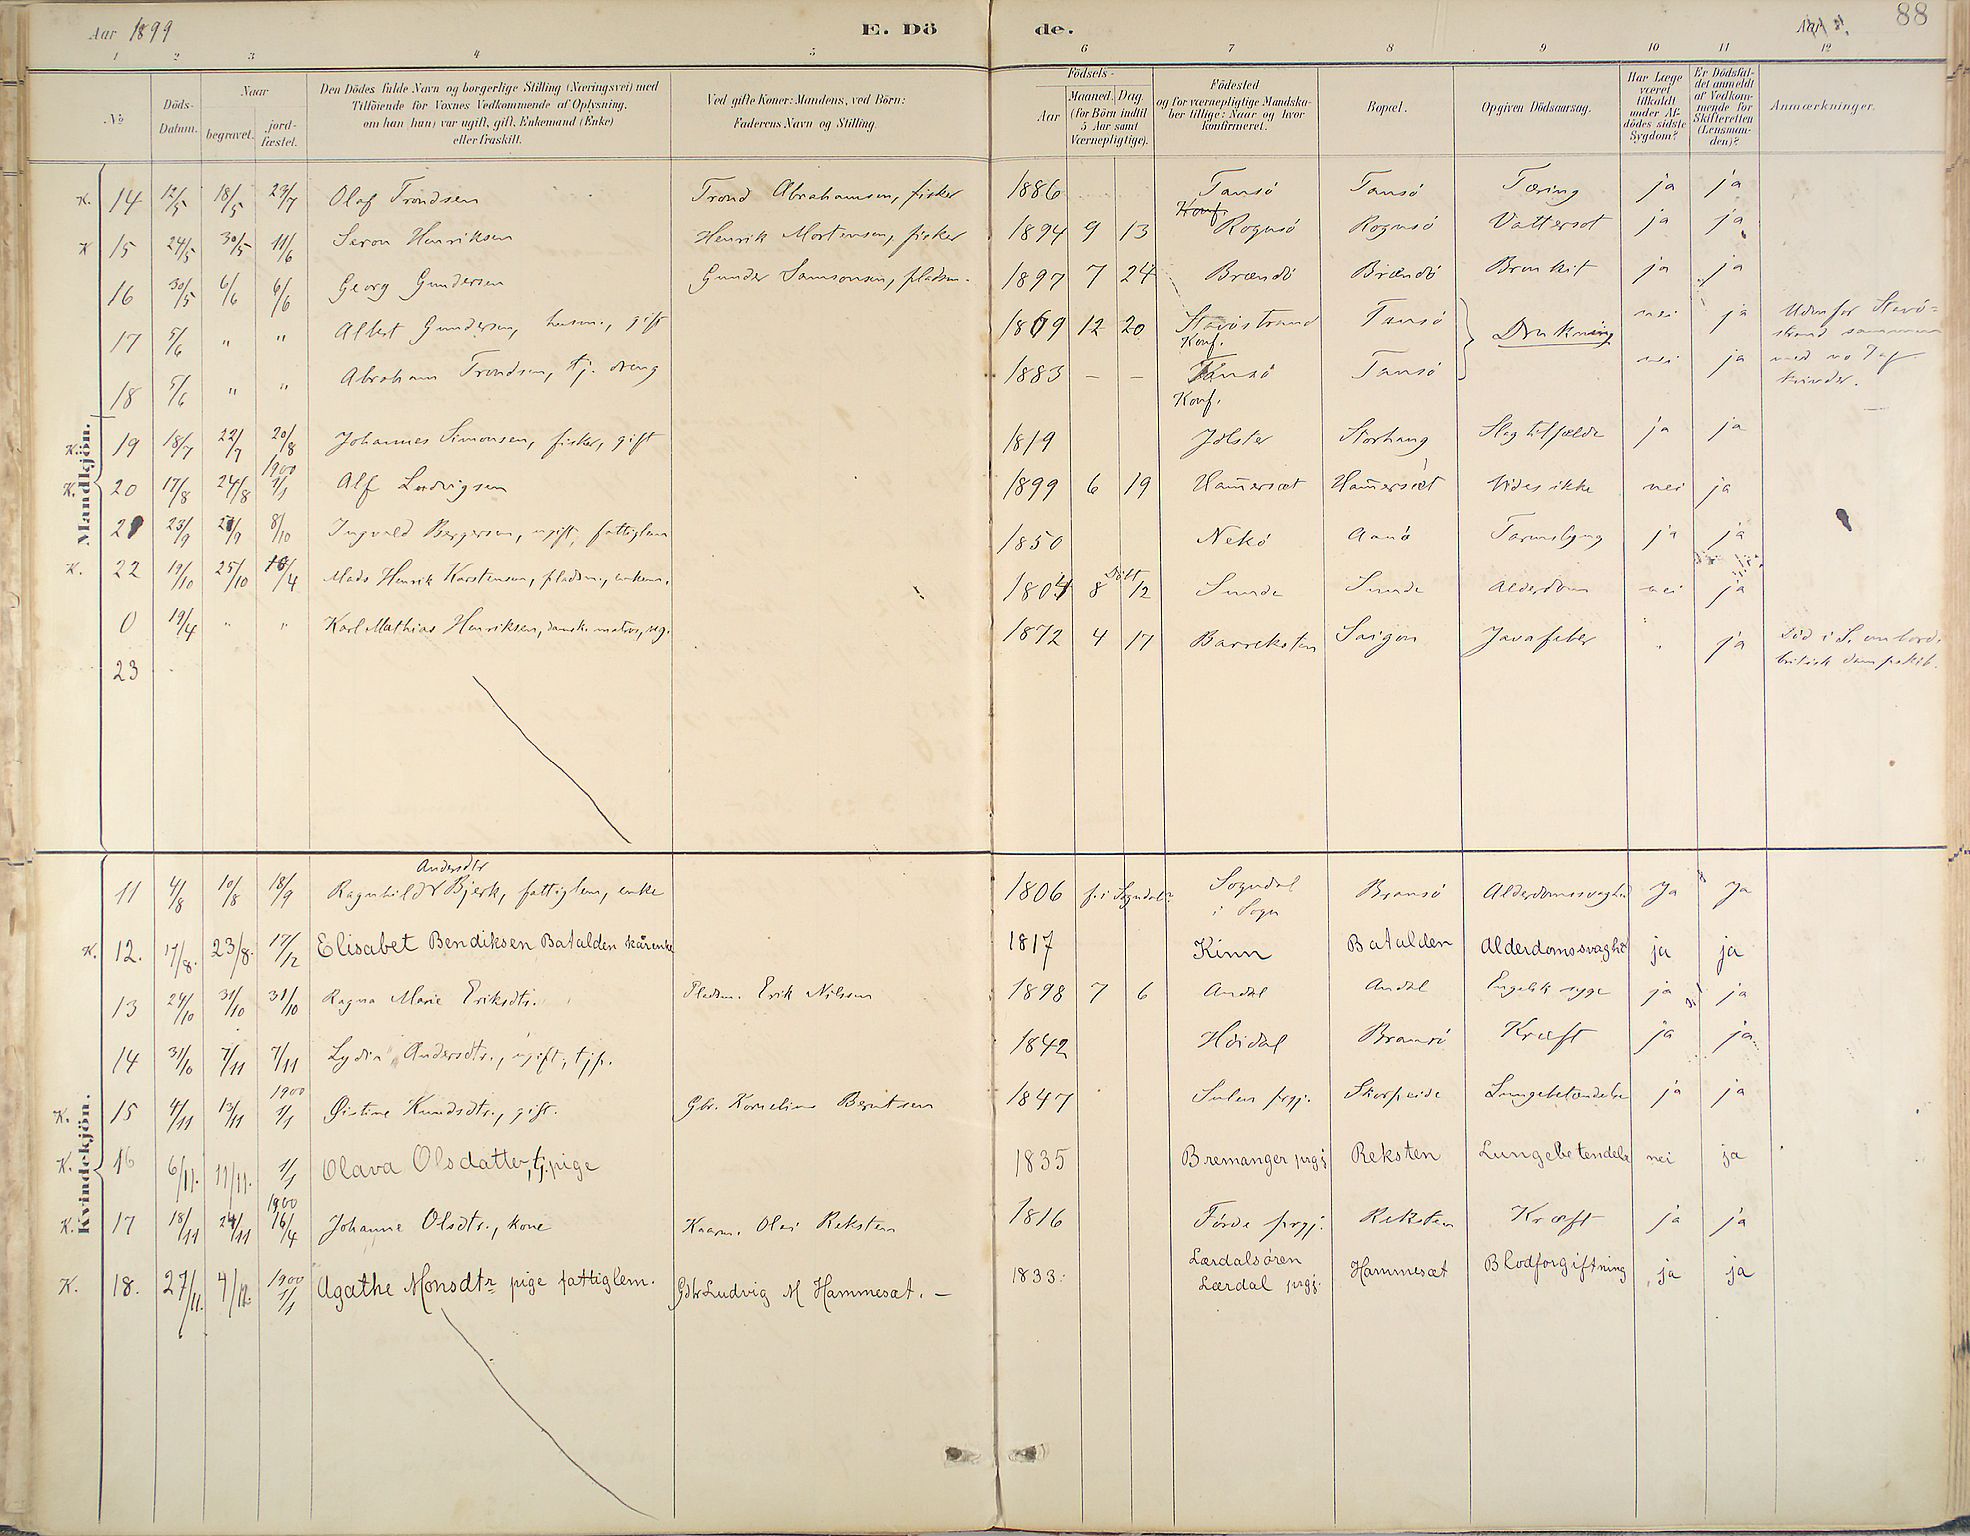 Aar 1899
E. Døde.
88
1 2 3 4 5 6 7 8 9 10 11 12
No
Döds-Datum.
Naar
begravet.
jord-fæstet.
Den Dödes fulde Navn og borgerlige Stilling (Næringsvei) med
Tilföiende for Voxnes Vedkommende af Oplysning,
om han (hun) var ugift, gift, Enkemand (Enke)
eller fraskilt.
Ved gifte Koner: Mandens, ved Börn:
Faderens Navn og Stilling.
Födsels-
Aar
Maaned. Dag.
(for Börn indtil
5 Aar samt
Værnepligtige).
Födested
og for værnepligtige Mandska-
ber tillige: Naar og hvor
konfirmeret.
Bopæl.
Opgiven Dödsaarsag.
Har Læge
været
tilkaldt
under Af-
dödes sidste
Sygdom?
Er Dödsfal-
det anmeldt
af Vedkom-
mende for
Skifteretten
(Lensman-
den)?
Anmærkninger.
Mandkjön.
K. 14 12/5 18/5 23/7 Olaf Trondsen Trond Abrahamsen, fisker 1886 Tansö Tansö Tæring ja ja
Konf.
K 15 24/5 30/5 11/6 Søren Henriksen Henrik Mortensen, fisker 1894 9 13 Rognsö Rognsö Vattersot ja ja
16 30/5 6/6 6/6 Georg Gundersen Gunder Samsonsen, pladsm. 1897 7 24 Brændö Brændö Bronkit ja ja
17 5/6 " " Albert Gundersen, husm., gift 1869 12 20 Stavöstrand Tansö Drukning nei ja Udenfor Stavö-
strand sammen
Konf.
18 5/6 " " Abraham Trondsen, tj. dreng 1883 – – Tansö Tansö nei ja med
kvinder.
Konf.
K. 19 18/7 22/7 20/8 Johannes Simonsen, fisker, gift 1819 Jölster Storhaug Slagtilfælde ja ja
K. 20 17/8 24/8 1900 1/1 Alf Ludvigsen 1899 6 19 Ham̄ersæt Ham̄ersæt Vides ikke nei ja
21 23/9 8/10 Ingvald Bergersen, ugift, fattiglem 1850 Nekö Aanö Tarmslyng ja ja
K. 22 19/10 25/10 Mads Henrik Karstensen, pladsm., enkem. 1804 8 Döbt 12 Sunde Sunde Alderdom nei ja
0 19/4 " " Karl Mathias Henriksen, dansk matros, ug. 1872 4 17 Barreksten Saigon Javafeber " ja Död i S. ombord.
britisk dampskib.
23
Kvindekjön.
Andersdtr
11 4/8 10/8 18/9 Ragnhild Bjerk, fattiglem, enke 1806 f. i Sogndal? Sogndal
i Sogn Bransö Alderdomssvaghed Ja Ja
K. 12. 17/8. 23/8. 17/12 Elisabet Bendiksen Batalden kårenke 1817 Kinn Batalden Alderdomssvaghed ja ja
13 24/10 31/10 31/10 Ragna Marie Eriksdtr. Pladsm. Erik Nilssen 1898 7 6 Andal Andal Engelsk syge ja ja
14 31/10 7/11 7/11 Lydia Andersdtr., ugift, tjp. 1842 Höidal Bransö Kræft ja ja
K. 15 4/11 13/11 1900 1/1 Øistine Knudsdtr., gift. Gbr. Kornelius Berntsen 1847 Sulen prgj. Skorpeide Lungebetændelse ja ja
K. 16 6/11. 11/11. 1/1 Olava Olsdatter, tj. pige 1835 Bremanger prgj Reksten Lungebetendelse nei ja
K. 17 18/11 24/11 1900 16/4 Johanne Olsdtr., kone Kaarm. Olai Reksten 1816 Förde prgj. Reksten Kræft ja ja
K. 18. 27/11. 4/12. 1900 1/1 Agathe Monsdtr pige fattiglem. Gbr Ludvig M Hammesæt. – 1833. Lærdalsören
Lærdal prgj. Hammesæt Blodforgiftning ja ja